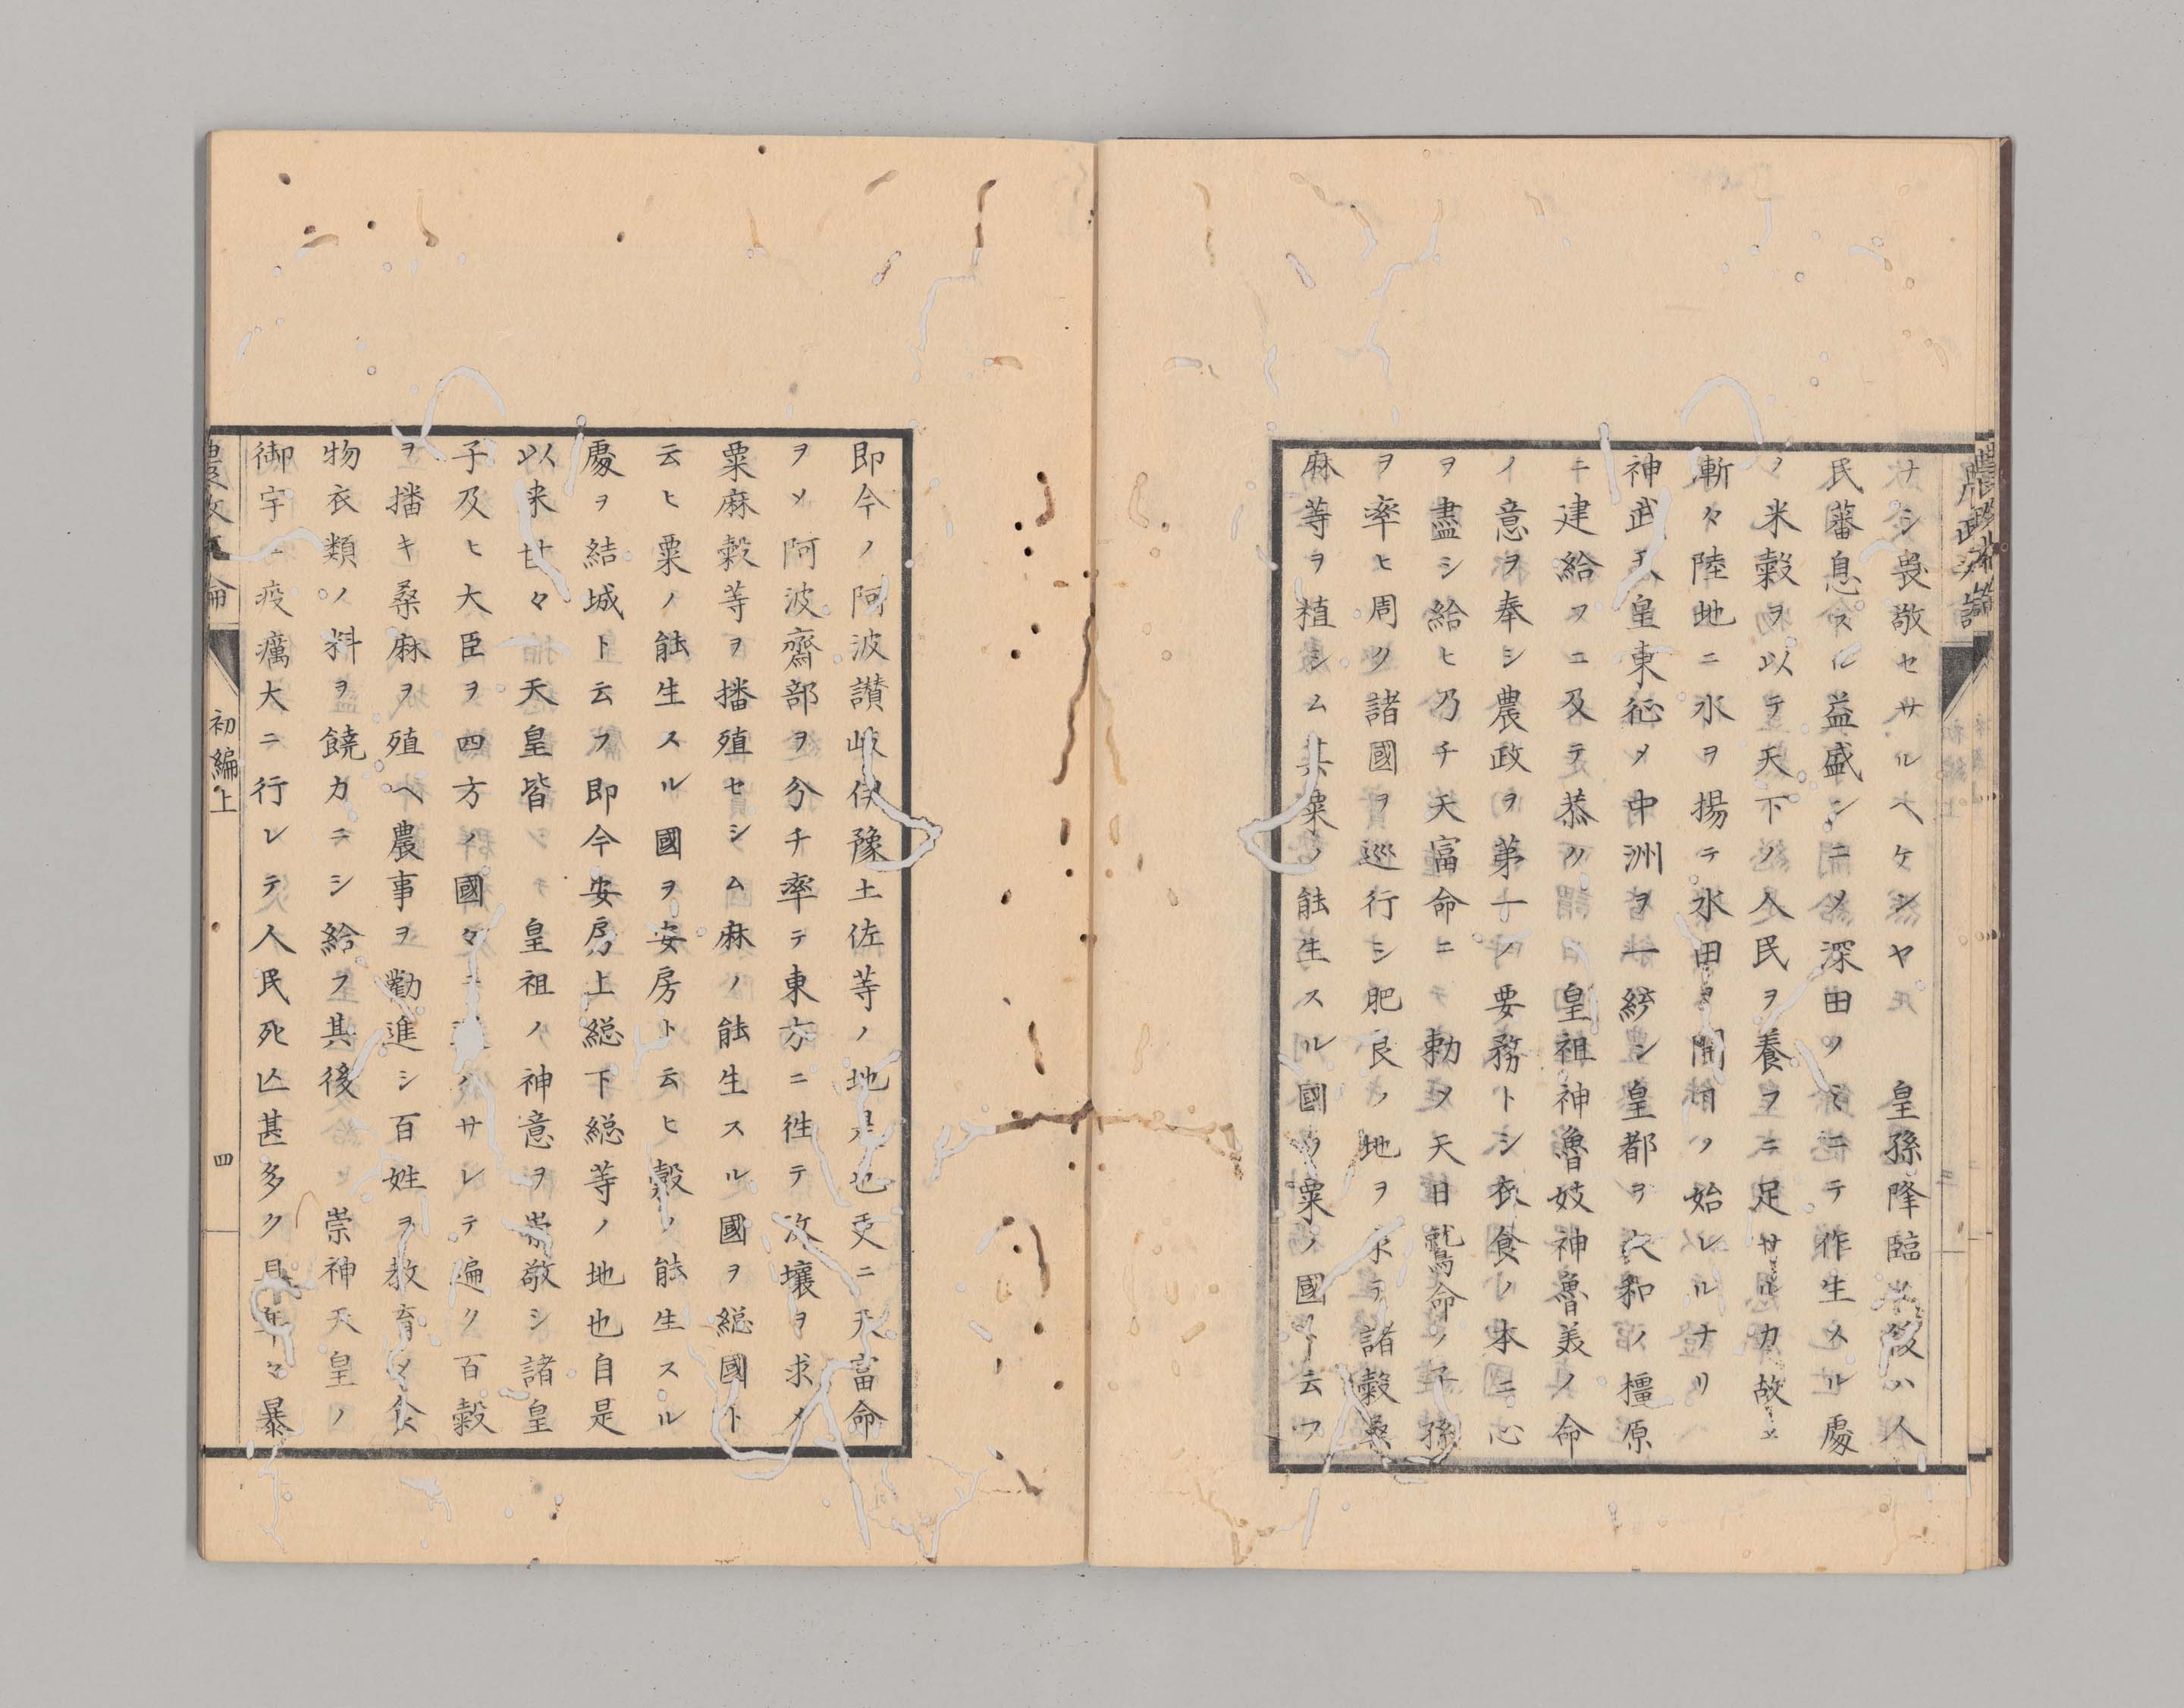 ナシ畏敬セサルヘケンヤ　皇孫降臨ハ人
民蕃息スル益盛ンニメ深田ノミニテ作生スル處
ノ米穀ヲ以テ天下ノ人民ヲ養フニ足サルカ故
漸々陸地ニ水ヲ揚テ水田ヲ開ノ始レルナリ
神武天皇東征メ中洲ヲ一統シ皇都ヲ大和ノ橿原
ニ建給フニ及テ恭ク　皇祖神魯妓神魯美ノ命
ノ意ヲ奉シ農政ヲ第一ノ要務トシ衣食ノ本ニ心
ヲ盡シ給ヒ乃チ天富命ニ勅メ天日鷲命ノ子孫
ヲ率ヒ周ク諸國ヲ巡行シ肥良ノ地ヲ求テ諸穀桑
麻等ヲ植シム其粟ノ能生スル國ヲ粟ノ國ト云フ
即今ノ阿波讃岐伊豫土佐等ノ地是也更ニ天富命
ヲメ阿波齋部ヲ分チ率テ東方ニ徃テ沃壤ヲ求メ
粟麻穀等ヲ播殖セシム麻ノ能生スル國ヲ総國ト
云ヒ粟ノ能生スル國ヲ安房ト云ヒ穀ノ能生スル
處ヲ結城ト云フ即今安房上総下総等ノ地也自是
以来世々天皇皆　皇祖ノ神意ヲ崇敬シ諸皇
子及ヒ大臣ヲ四方ノ國々ニサレテ遍ク百穀
ヲ播キ桑麻ヲ殖ヘ農事ヲ勸進シ百姓ヲ教育メ食
物衣類ノ料ヲ饒カニシ給フ其後　崇神天皇ノ
御宇ニ疫癘大ニ行レテ人民死亾甚多ク且年々暴
初編上
四